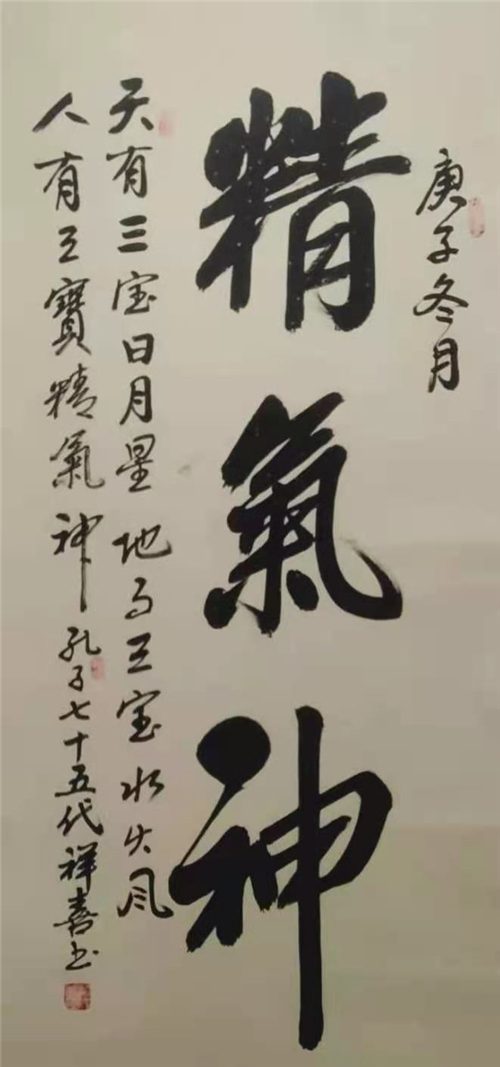 庚子冬月
精氣神
天有三宝日月星地有三宝水火风
人有三寶精氣神孔子七十五代祥喜书